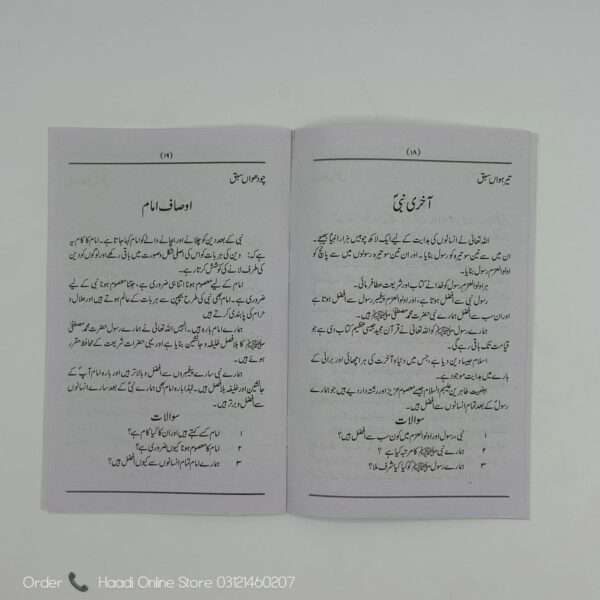 (۱۸)
تیرہواں سبق
آخری نبیؐ
اللہ تعالیٰ نے انسانوں کی ہدایت کے لیے ایک لاکھ چوبیس ہزار انبیاؑ بھیجے۔
ان میں سے تین سو تیرہ کو رسول بنایا۔ اور ان تین سو تیرہ رسولوں میں سے پانچ کو
اولوالعزم رسول بنایا۔
ہر اولوالعزم رسول کو خدا نے کتاب اور شریعت عطا فرمائی۔
رسول نبی سے افضل ہوتا ہے، اور اولوالعزم پیغمبر رسول سے افضل ہوتا ہے
اور ان سب سے افضل ہمارے نبی حضرت محمد مصطفیٰ ﷺ ہیں۔
ہمارے رسول ﷺ کو اللہ تعالیٰ نے قرآن مجید جیسی عظیم کتاب دی ہے جو
قیامت تک باقی رہے گی۔
اسلام جیسا دین دیا ہے، جس میں دنیا و آخرت کی ہر اچھائی اور برائی کے
بارے میں ہدایت موجود ہے۔
اہلبیت طاہرین علیہم السلام جیسے معصوم عزیز اور رشتہ دار دیے ہیں جو ہمارے
رسولؐ کے بعد تمام انسانوں سے افضل ہیں۔
سوالات
۱ نبی، رسول اور اولوالعزم میں کون سب سے افضل ہیں؟
۲ ہمارے نبی ﷺ کا مرتبہ کیا ہے ؟
۳ ہمارے رسول ﷺ کو کیا کیا شرف ملا؟
(۱۹)
چودھواں سبق
اوصاف امام
نبی کے بعد دین کو چلانے اور بچانے والے کو امام کہا جاتا ہے۔ امام کا کام یہ
ہے کہ: دین کی ہر بات کو اس کی اصلی شکل و صورت میں باقی رکھے اور لوگوں کو دین
کی طرف لانے کی کوشش کرتا رہے۔
امام کے لیے معصوم ہونا اتنا ہی ضروری ہے، جتنا معصوم ہونا نبی کے لیے
ضروری ہے۔ امام بھی نبی کی طرح بچپن سے ہر بات کے عالم ہوتے ہیں اور حلال و
حرام کی پابندی کرتے ہیں۔
ہمارے امام بارہ ہیں۔ انہیں اللہ تعالیٰ نے ہمارے رسول حضرت محمد مصطفیٰ
ﷺ کا بلا فصل خلیفہ و جانشین بنایا ہے اور یہی حضرات شریعت کے محافظ مقرر
ہوئے ہیں۔
ہمارے نبی سارے پیغمبروں سے افضل و بالاتر ہیں اور بارہ امام آپؐ کے
جانشین اور خلیفہ بلا فصل ہیں۔ لہٰذا بارہ امام بھی ہمارے نبی کے بعد سارے انسانوں
سے افضل و برتر ہیں۔
سوالات
۱ امام کسے کہتے ہیں اور ان کا کیا کام ہے؟
۲ امام کا معصوم ہونا کیوں ضروری ہے؟
۳ ہمارے امام تمام انسانوں سے کیوں افضل ہیں؟
Order Haadi Online Store 03121460207